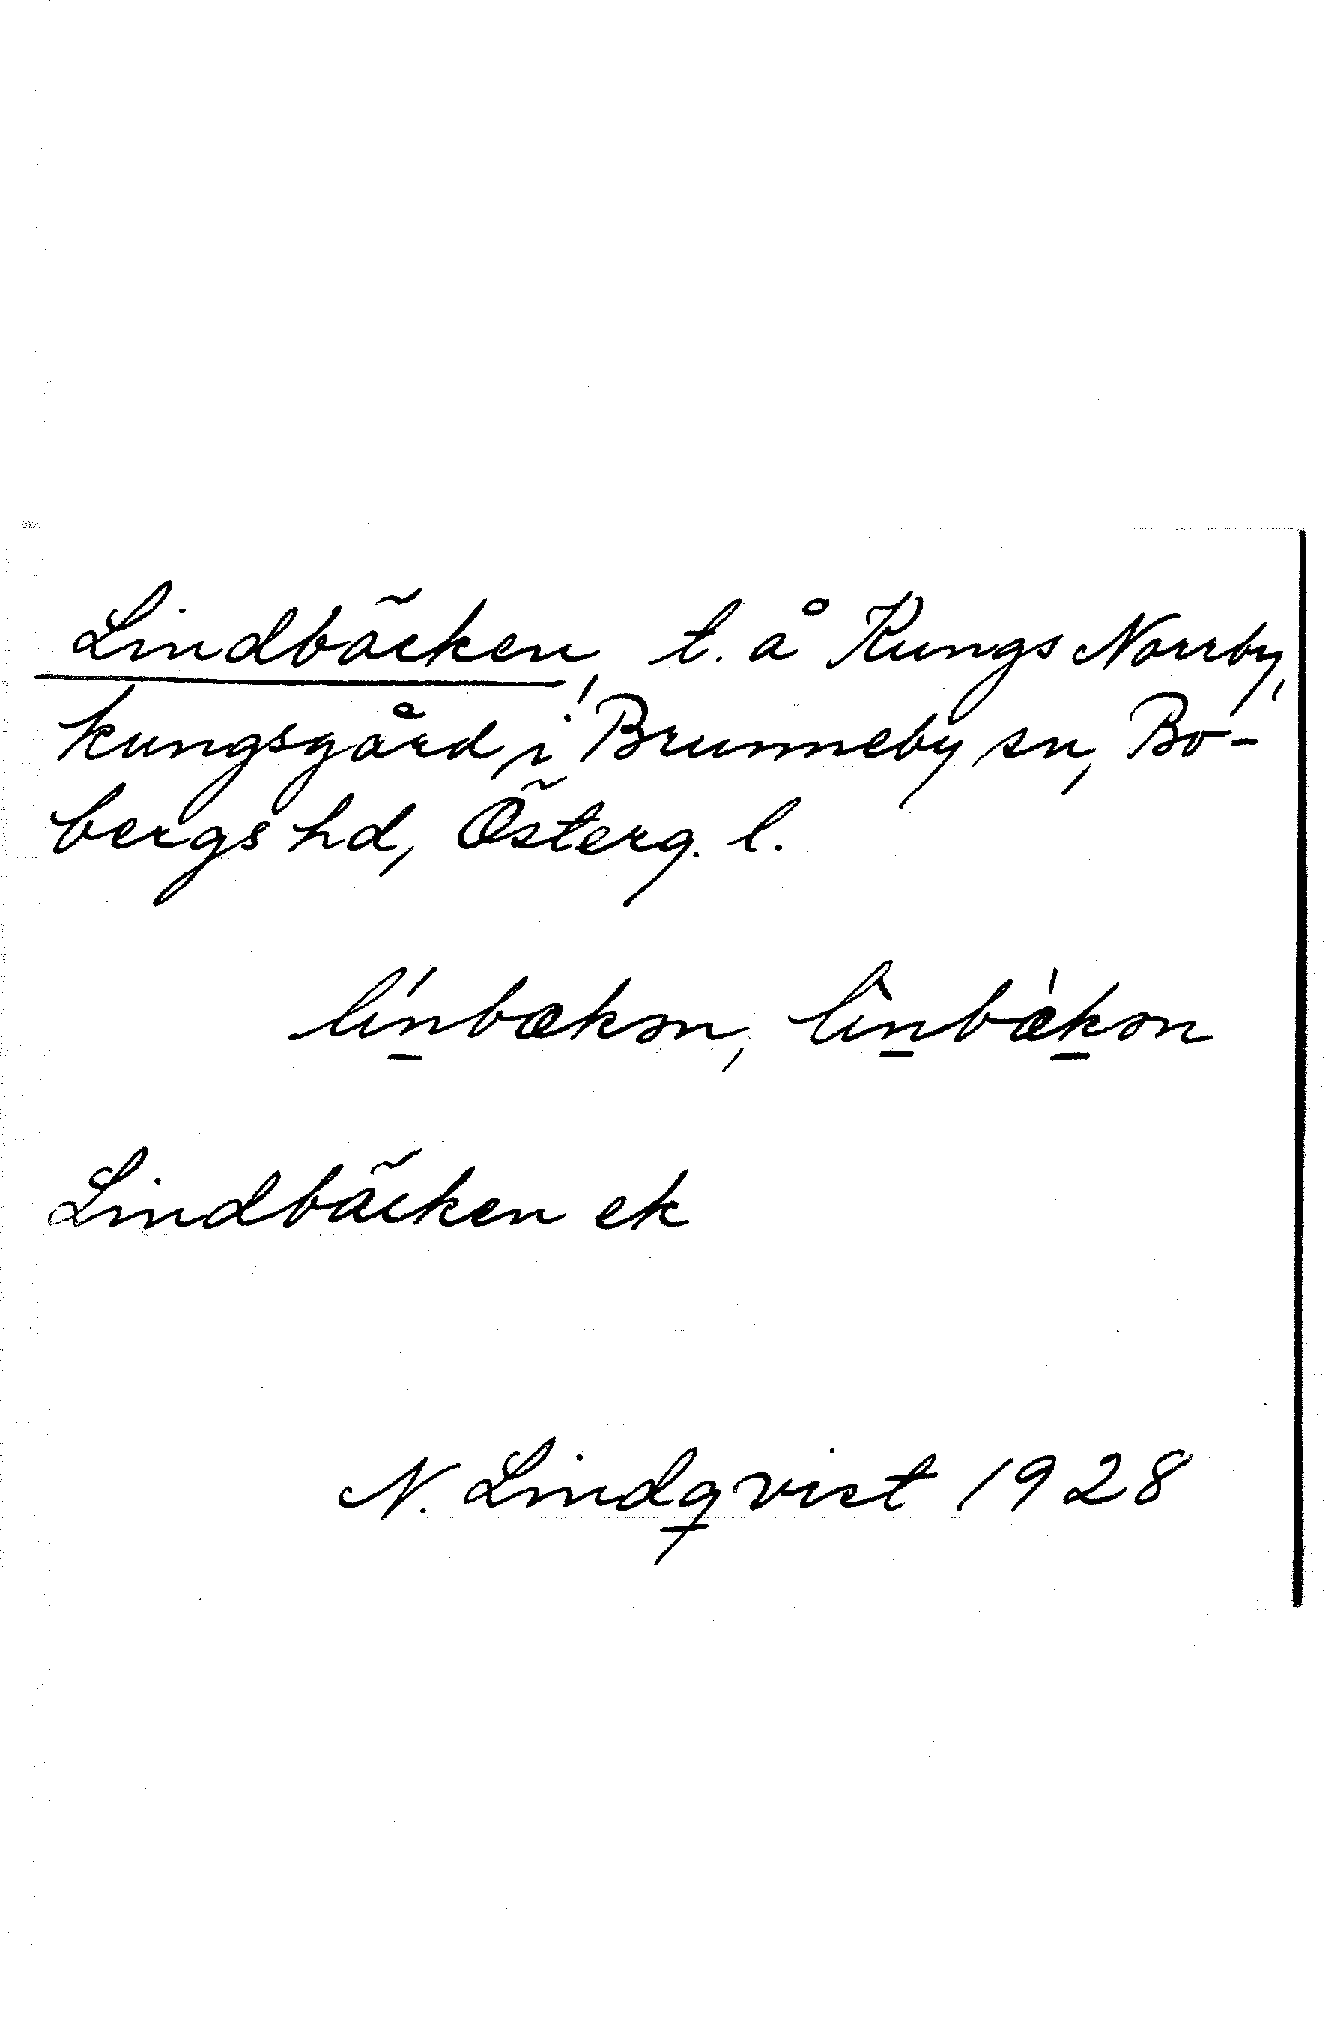 Lindbäcken, t. å Kungs Norrby,
kungsgård, i Brunneby sn, Bo-
bergs hd, Österg. l.
lı́n̲bækən, lı̀n̲bæ̀k̲ən
Lindbäcken ek
N. Lindqvist 1928